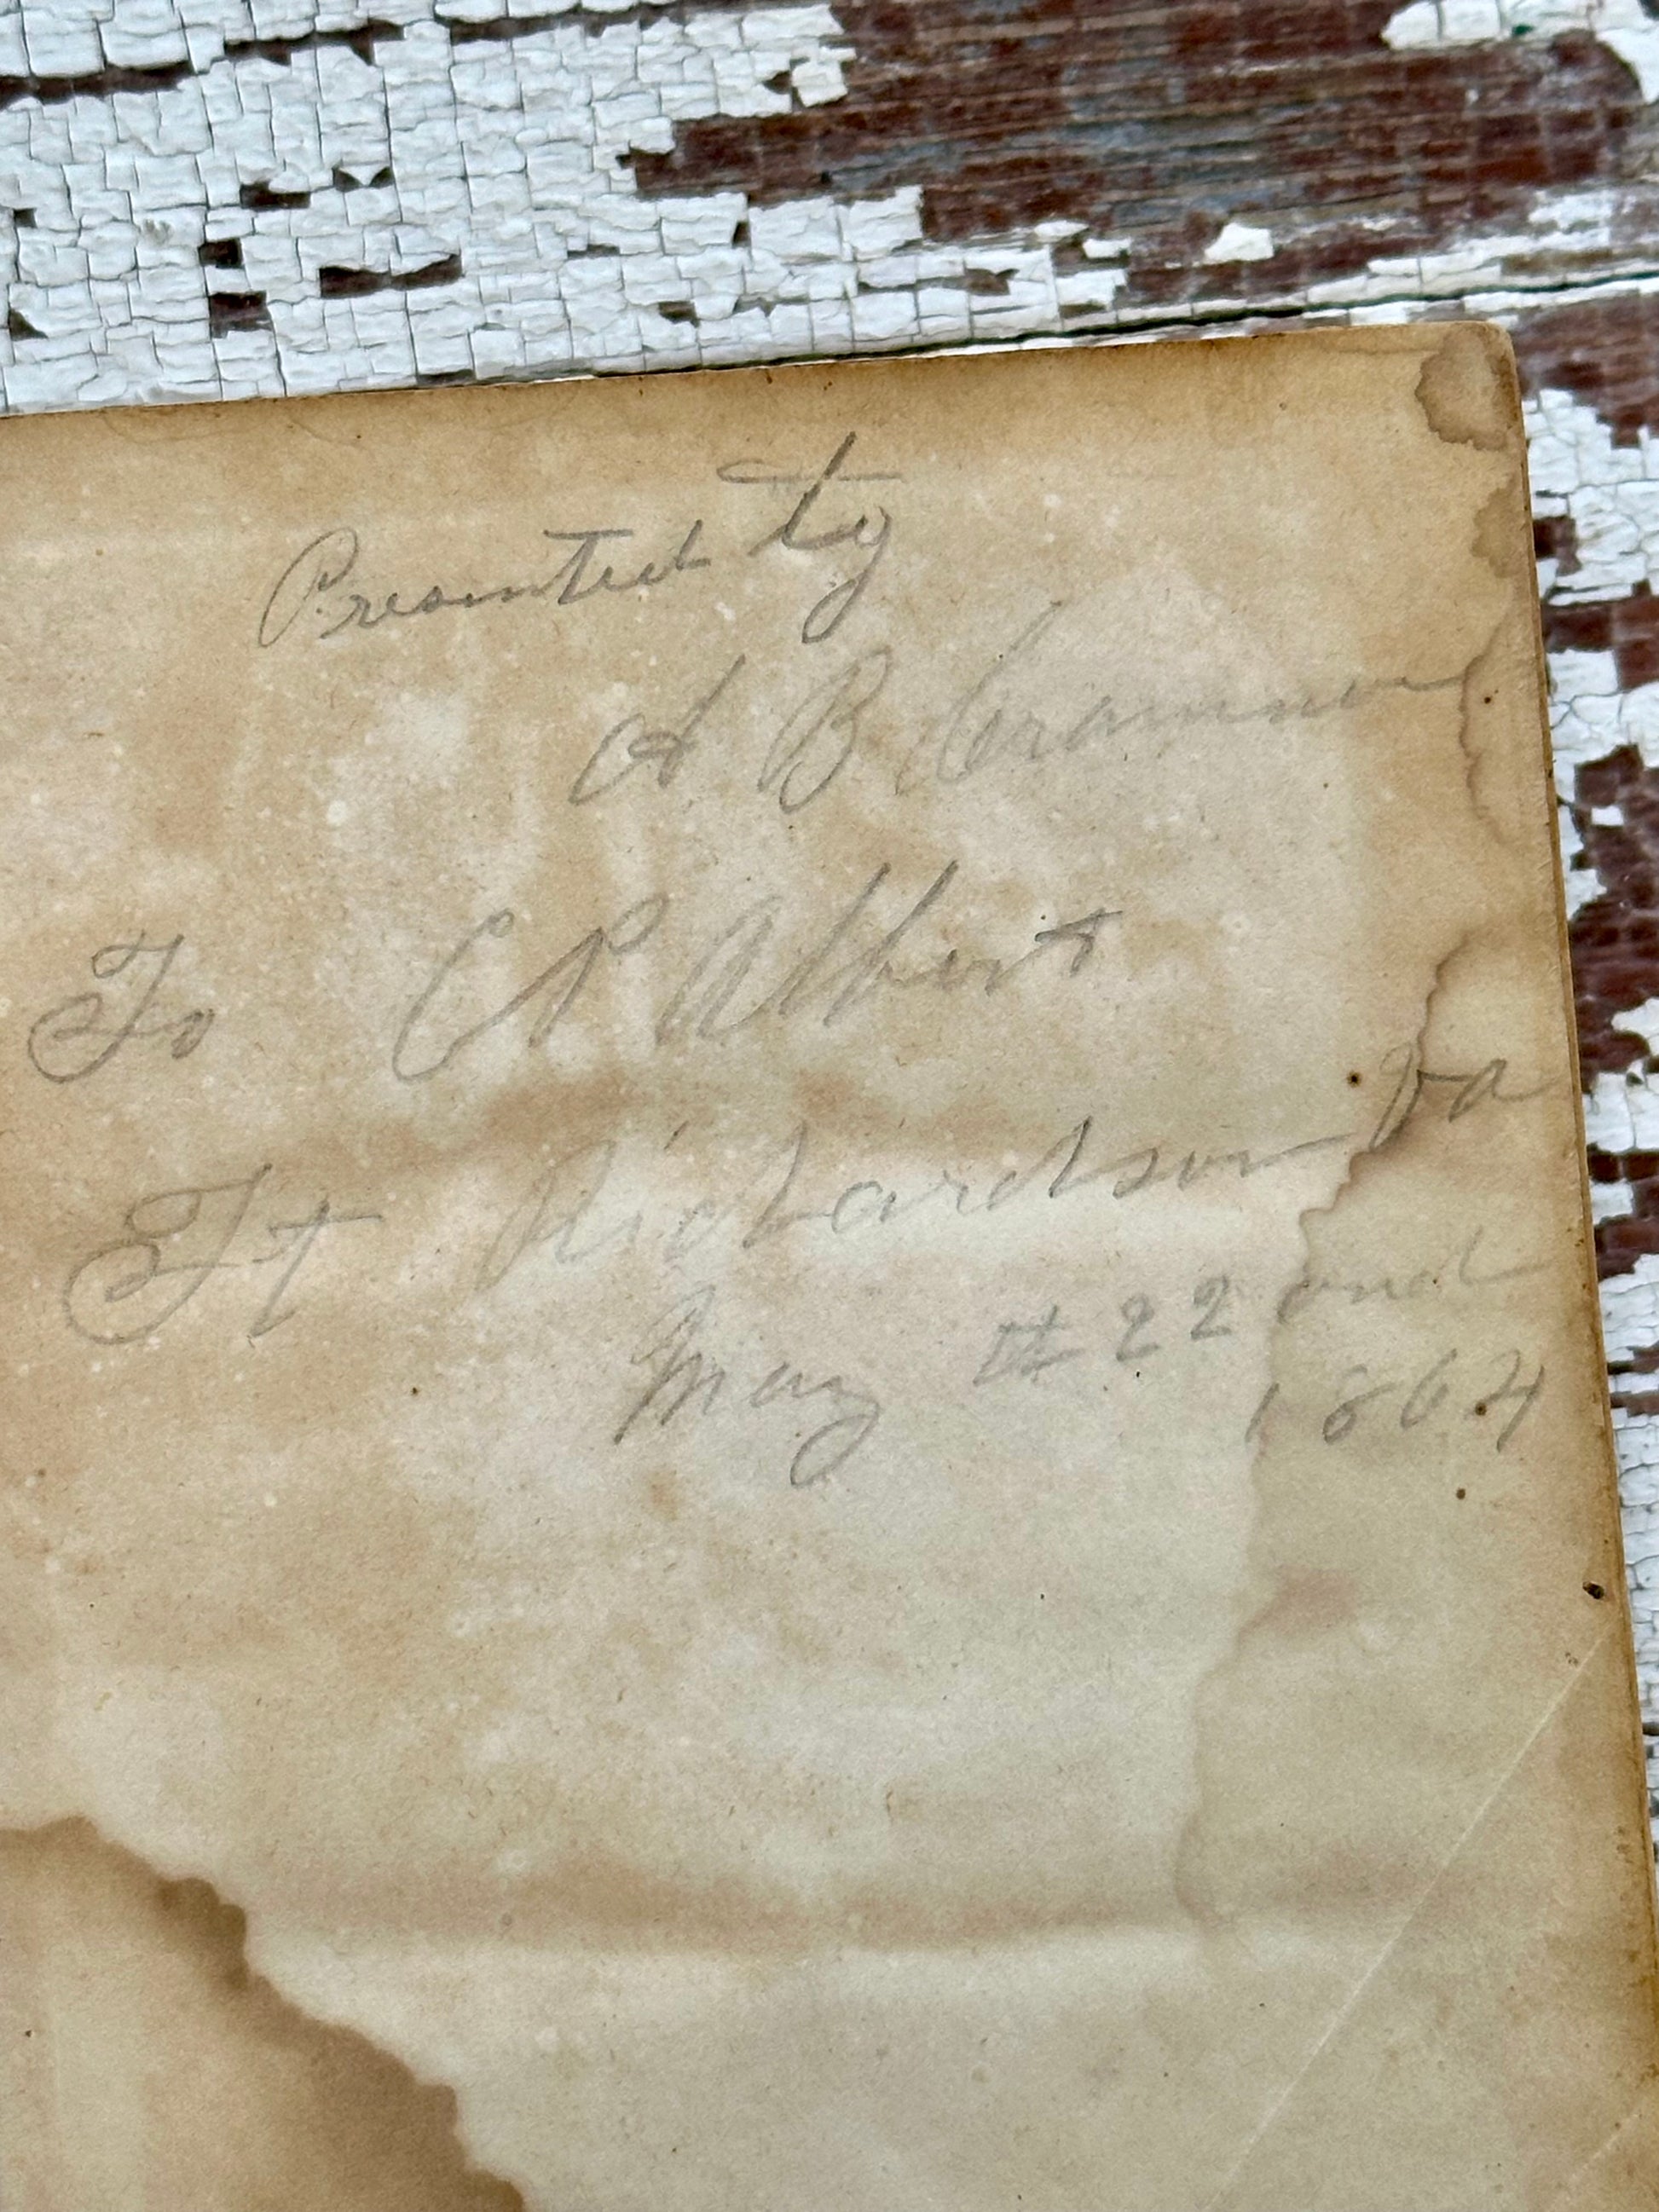 Presented by
A B
To C P Albert
Ft Richardson Va
May 22ond
1864